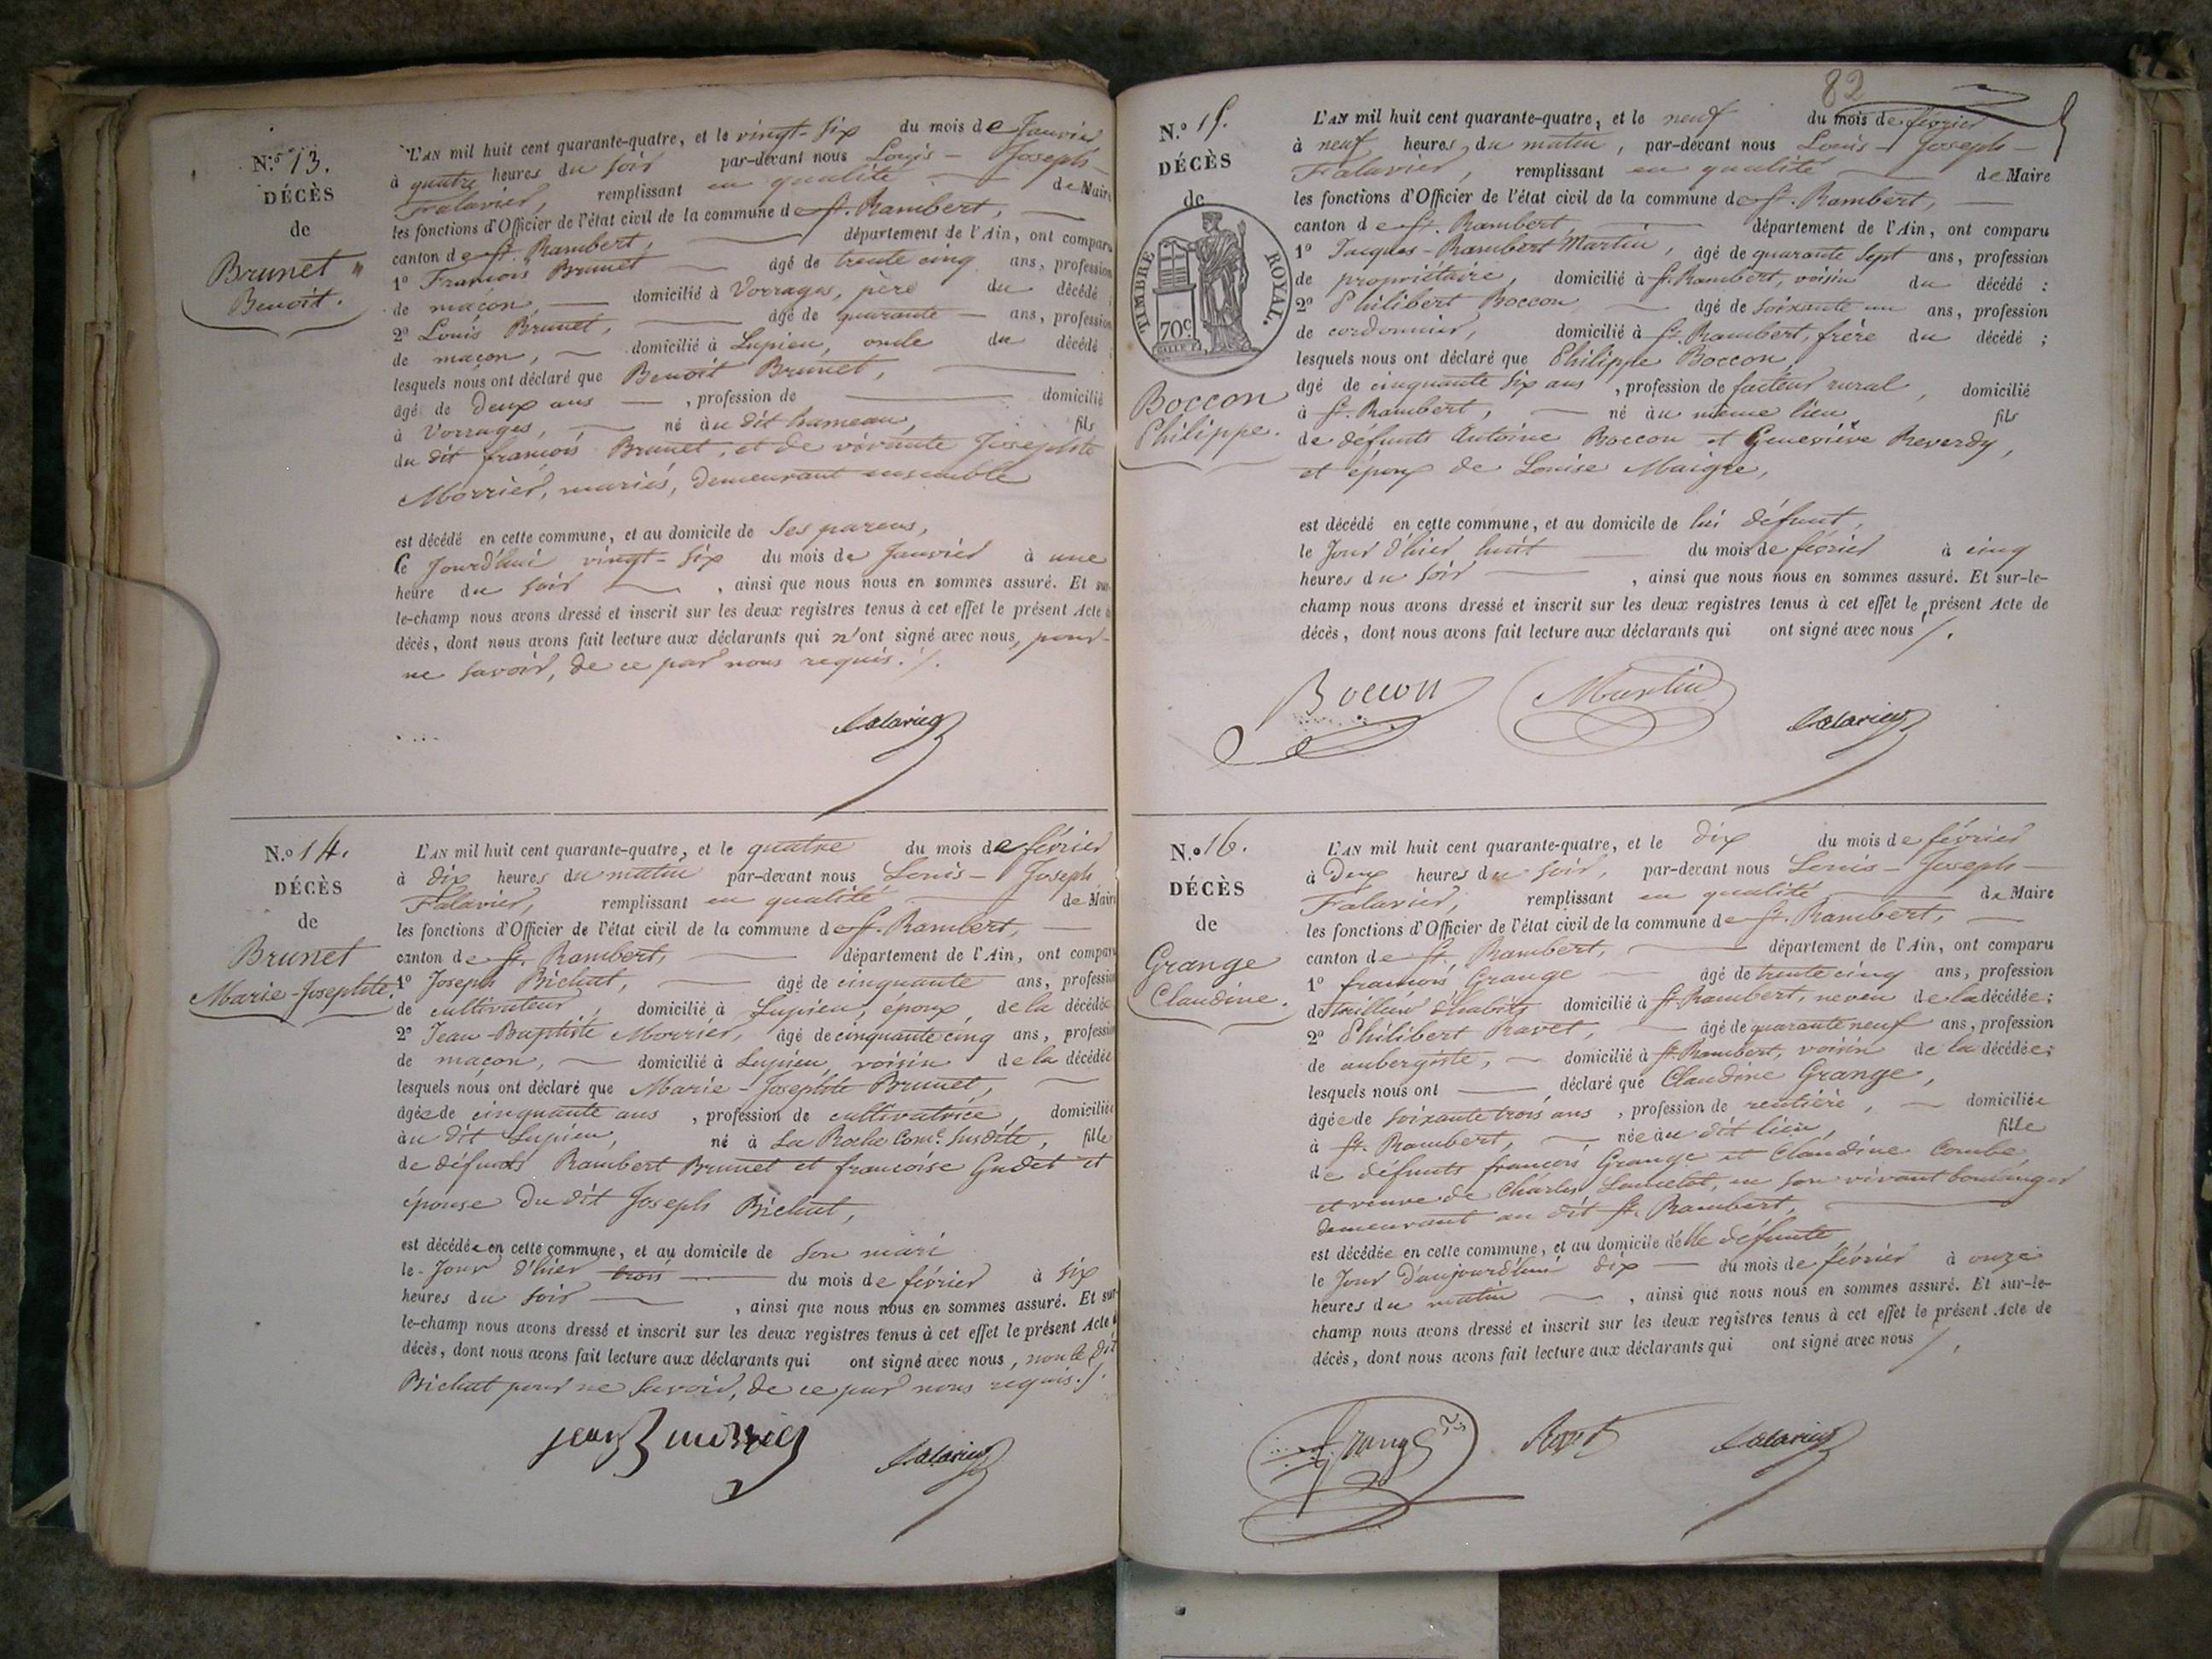 N.º 13.
DÉCÈS
de
Brunet
Benoit.
L'AN mil huit cent quarante-quatre, et le vingt-six du mois de Janvier
à quatre heures du soir par-devant nous Louis-Joseph
Falavier, remplissant en qualité de Maire
les fonctions d'Officier de l'état civil de la commune de St. Rambert,
canton de St. Rambert, département de l'Ain, ont comparu
1º François Brunet âgé de trente cinq ans, profession
de maçon, domicilié à Vorrages, père du décédé ;
2º Louis Brunet, âgé de quarante ans, profession
de maçon, domicilié à Lupieu, oncle du décédé ;
lesquels nous ont déclaré que Benoit Brunet,
âgé de deux ans, profession de domicilié
à Vorrages, né au dit hameau, fils
du dit françois Brunet, et de vivante Josephte
Morrier, mariés, demeurant ensemble
est décédé en cette commune, et au domicile de ses parens,
Ce Jourd'hui vingt-six du mois de Janvier à une
heure du soir, ainsi que nous nous en sommes assuré. Et sur-
le-champ nous avons dressé et inscrit sur les deux registres tenus à cet effet le présent Acte de
décès, dont nous avons fait lecture aux déclarants qui n'ont signé avec nous, pour
ne savoir, de ce par nous requis./.
Falavier
N.º 14.
DÉCÈS
de
Brunet
Marie-Josephte.
L'AN mil huit cent quarante-quatre, et le quatre du mois de février
à dix heures du matin par-devant nous Louis-Joseph
Falavier, remplissant en qualité de Maire
les fonctions d'Officier de l'état civil de la commune de St. Rambert,
canton de St. Rambert, département de l'Ain, ont comparu
1º Joseph Bichat, âgé de cinquante ans, profession
de cultivateur, domicilié à Lupieu, époux de la décédée
2º Jean-Baptiste Morrier, âgé de cinquante cinq ans, profession
de maçon, domicilié à Lupieu, voisin de la décédée
lesquels nous ont déclaré que Marie-Josephte Brunet,
âgée de cinquante ans, profession de cultivatrice, domiciliée
au dit Lupieu, né à La Roche Come. susdite, fille
de défunts Rambert Brunet et françoise Gudet et
épouse du dit Joseph Bichat,
est décédée en cette commune, et au domicile de son mari
le Jour d'hier trois du mois de février à six
heures du soir, ainsi que nous nous en sommes assuré. Et sur-
le-champ nous avons dressé et inscrit sur les deux registres tenus à cet effet le présent Acte de
décès, dont nous avons fait lecture aux déclarants qui ont signé avec nous, non le dit
Bichat pour ne savoir, de ce par nous requis./.
jean B morrier Falavier
82
N.º 15.
DÉCÈS
de
TIMBRE ROYAL.
70c
Boccon
Philippe.
L'AN mil huit cent quarante-quatre, et le neuf du mois de février
à neuf heures du matin, par-devant nous Louis-Joseph-
Falavier, remplissant en qualité de Maire
les fonctions d'Officier de l'état civil de la commune de St. Rambert,
canton de St. Rambert, département de l'Ain, ont comparu
1º Jacques-Rambert Martin, âgé de quarante sept ans, profession
de propriétaire, domicilié à St. Rambert, voisin du décédé :
2º Philibert Boccon, âgé de soixante un ans, profession
de cordonnier, domicilié à St. Rambert, frère du décédé ;
lesquels nous ont déclaré que Philippe Boccon,
âgé de cinquante six ans, profession de facteur rural, domicilié
à St. Rambert, né au même lieu, fils
de défunts Antoine Boccon et Geneviève Reverdy,
et époux de Louise Maigre,
est décédé en cette commune, et au domicile de lui défunt,
le Jour d'hier huit du mois de février à cinq
heures du soir, ainsi que nous nous en sommes assuré. Et sur-le-
champ nous avons dressé et inscrit sur les deux registres tenus à cet effet le présent Acte de
décès, dont nous avons fait lecture aux déclarants qui ont signé avec nous /.
Boccon Martin Falavier
N.º 16.
DÉCÈS
de
Grange
Claudine.
L'AN mil huit cent quarante-quatre, et le dix du mois de février
à deux heures du soir, par-devant nous Louis-Joseph-
Falavier, remplissant en qualité de Maire
les fonctions d'Officier de l'état civil de la commune de St. Rambert,
canton de St. Rambert, département de l'Ain, ont comparu
1º françois Grange âgé de trente cinq ans, profession
de tailleur d'habits domicilié à St. Rambert, neveu de la décédée ;
2º Philibert Ravet, âgé de quarante neuf ans, profession
de aubergiste, domicilié à St. Rambert, voisin de la décédée ;
lesquels nous ont déclaré que Claudine Grange,
âgée de soixante trois ans, profession de rentière, domiciliée
à St. Rambert, née au dit lieu, fille
de défunts françois Grange et Claudine Combe
et veuve de Charles Lancelot, en son vivant boulanger
demeurant au dit St. Rambert,
est décédée en cette commune, et au domicile d'elle défunte
le Jour d'aujourd'hui dix du mois de février à onze
heures du matin, ainsi que nous nous en sommes assuré. Et sur-le-
champ nous avons dressé et inscrit sur les deux registres tenus à cet effet le présent Acte de
décès, dont nous avons fait lecture aux déclarants qui ont signé avec nous /.
Grange Ravet Falavier